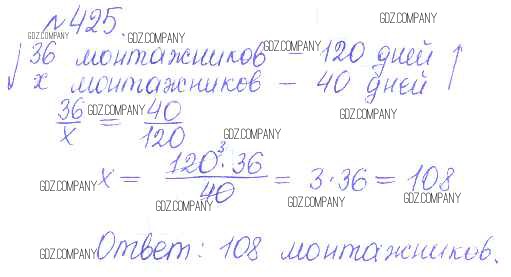 №425.
GDZ.COMPANY
GDZ.COMPANY GDZ.COMPANY
36 монтажников – 120 дней
x монтажников – 40 дней
GDZ.COMPANY GDZ.COMPANY
36/x = 40/120
GDZ.COMPANY GDZ.COMPANY
x = 120³·36/40 = 3·36 = 108
GDZ.COMPANY GDZ.COMPANY
GDZ.COMPANY GDZ.COMPANY
GDZ.COMPANY
Ответ: 108 монтажников.